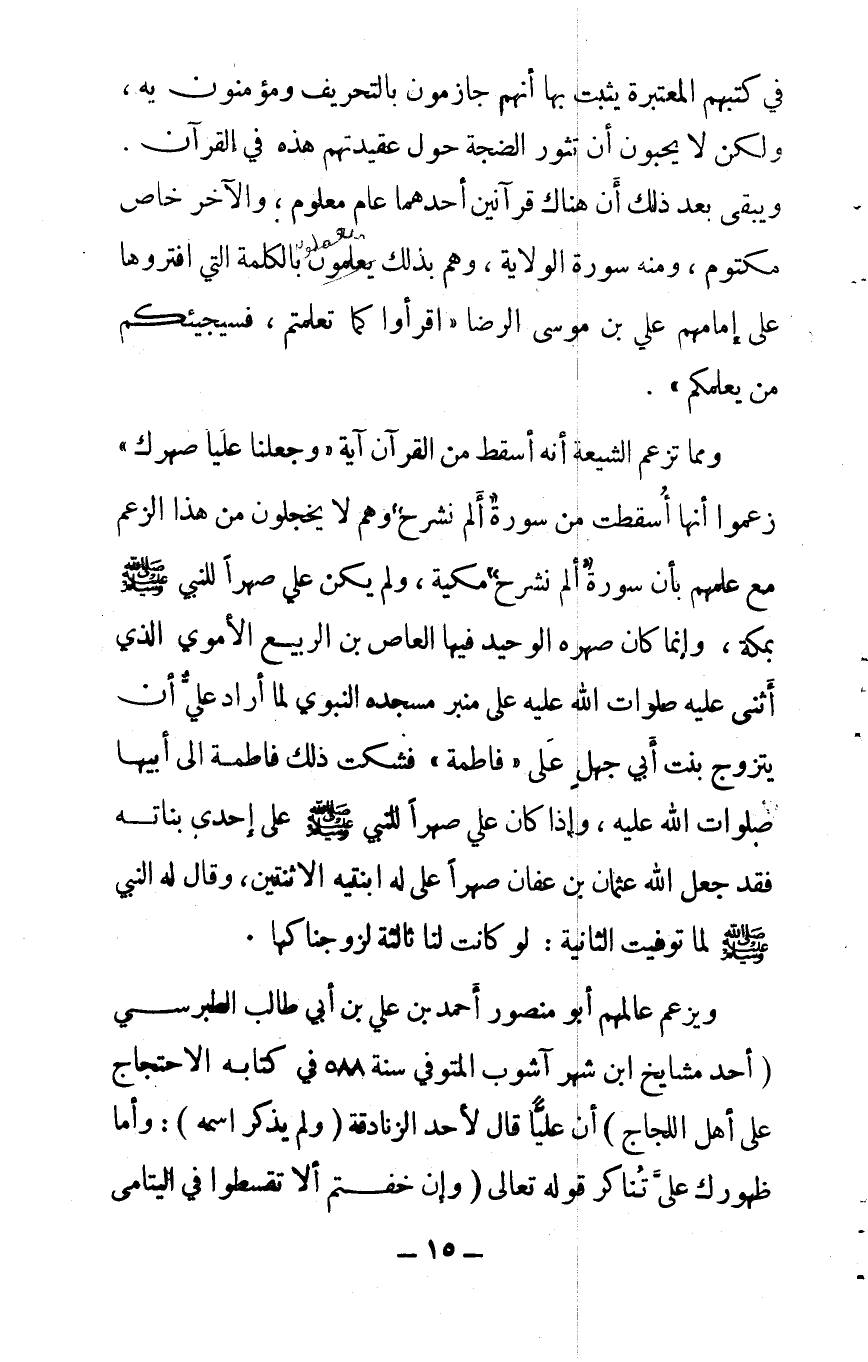 في كتبهم المعتبرة يثبت بها أنهم جازمون بالتحريف ومؤمنون به ،
ولكن لا يحبون أن تثور الضجة حول عقيدتهم هذه في القرآن .
ويبقى بعد ذلك أن هناك قرآنين أحدهما عام معلوم ، والآخر خاص
مكتوم ، ومنه سورة الولاية ، وهم بذلك يعلمون يعملون بالكلمة التي افتروها
على إمامهم علي بن موسى الرضا « اقرأوا كما تعلمتم ، فسيجيئكم
من يعلمكم » .
ومما تزعم الشيعة أنه أسقط من القرآن آية « وجعلنا علَياً صهرك »
زعموا أنها أُسقطت من سورة " أَلم نشرح " وهم لا يخجلون من هذا الزعم
مع علمهم بأن سورة " ألم نشرح " مكية ، ولم يكن علي صهراً للنبي ﷺ
بمكة ، وإنما كان صهره الوحيد فيها العاص بن الربيع الأموي الذي
أَثنى عليه صلوات الله عليه على منبر مسجده النبوي لما أراد عليٌّ أن
يتزوج بنت أَبي جهلٍ عَلى « فاطمة » فشكت ذلك فاطمة الى أبيها
صلوات الله عليه ، وإذا كان علي صهراً للنبي ﷺ على إحدى بناته
فقد جعل الله عثمان بن عفان صهراً على له ابنتيه الاثنتين، وقال له النبي
ﷺ لما توفيت الثانية : لو كانت لنا ثالثة لزوجناكها .
ويزعم عالمهم أبو منصور أَحمد بن علي بن أبي طالب الطبرسي
( أحد مشايخ ابن شهر آشوب المتوفي سنة ٥٨٨ في كتابه الاحتجاج
على أهل اللجاج ) أن عليًّا قال لأحد الزنادقة ( ولم يذكر اسمه ) : وأما
ظهورك علىَّ تُناكر قوله تعالى ( وإن خفتم ألا تقسطوا في اليتامى
– ١٥ –